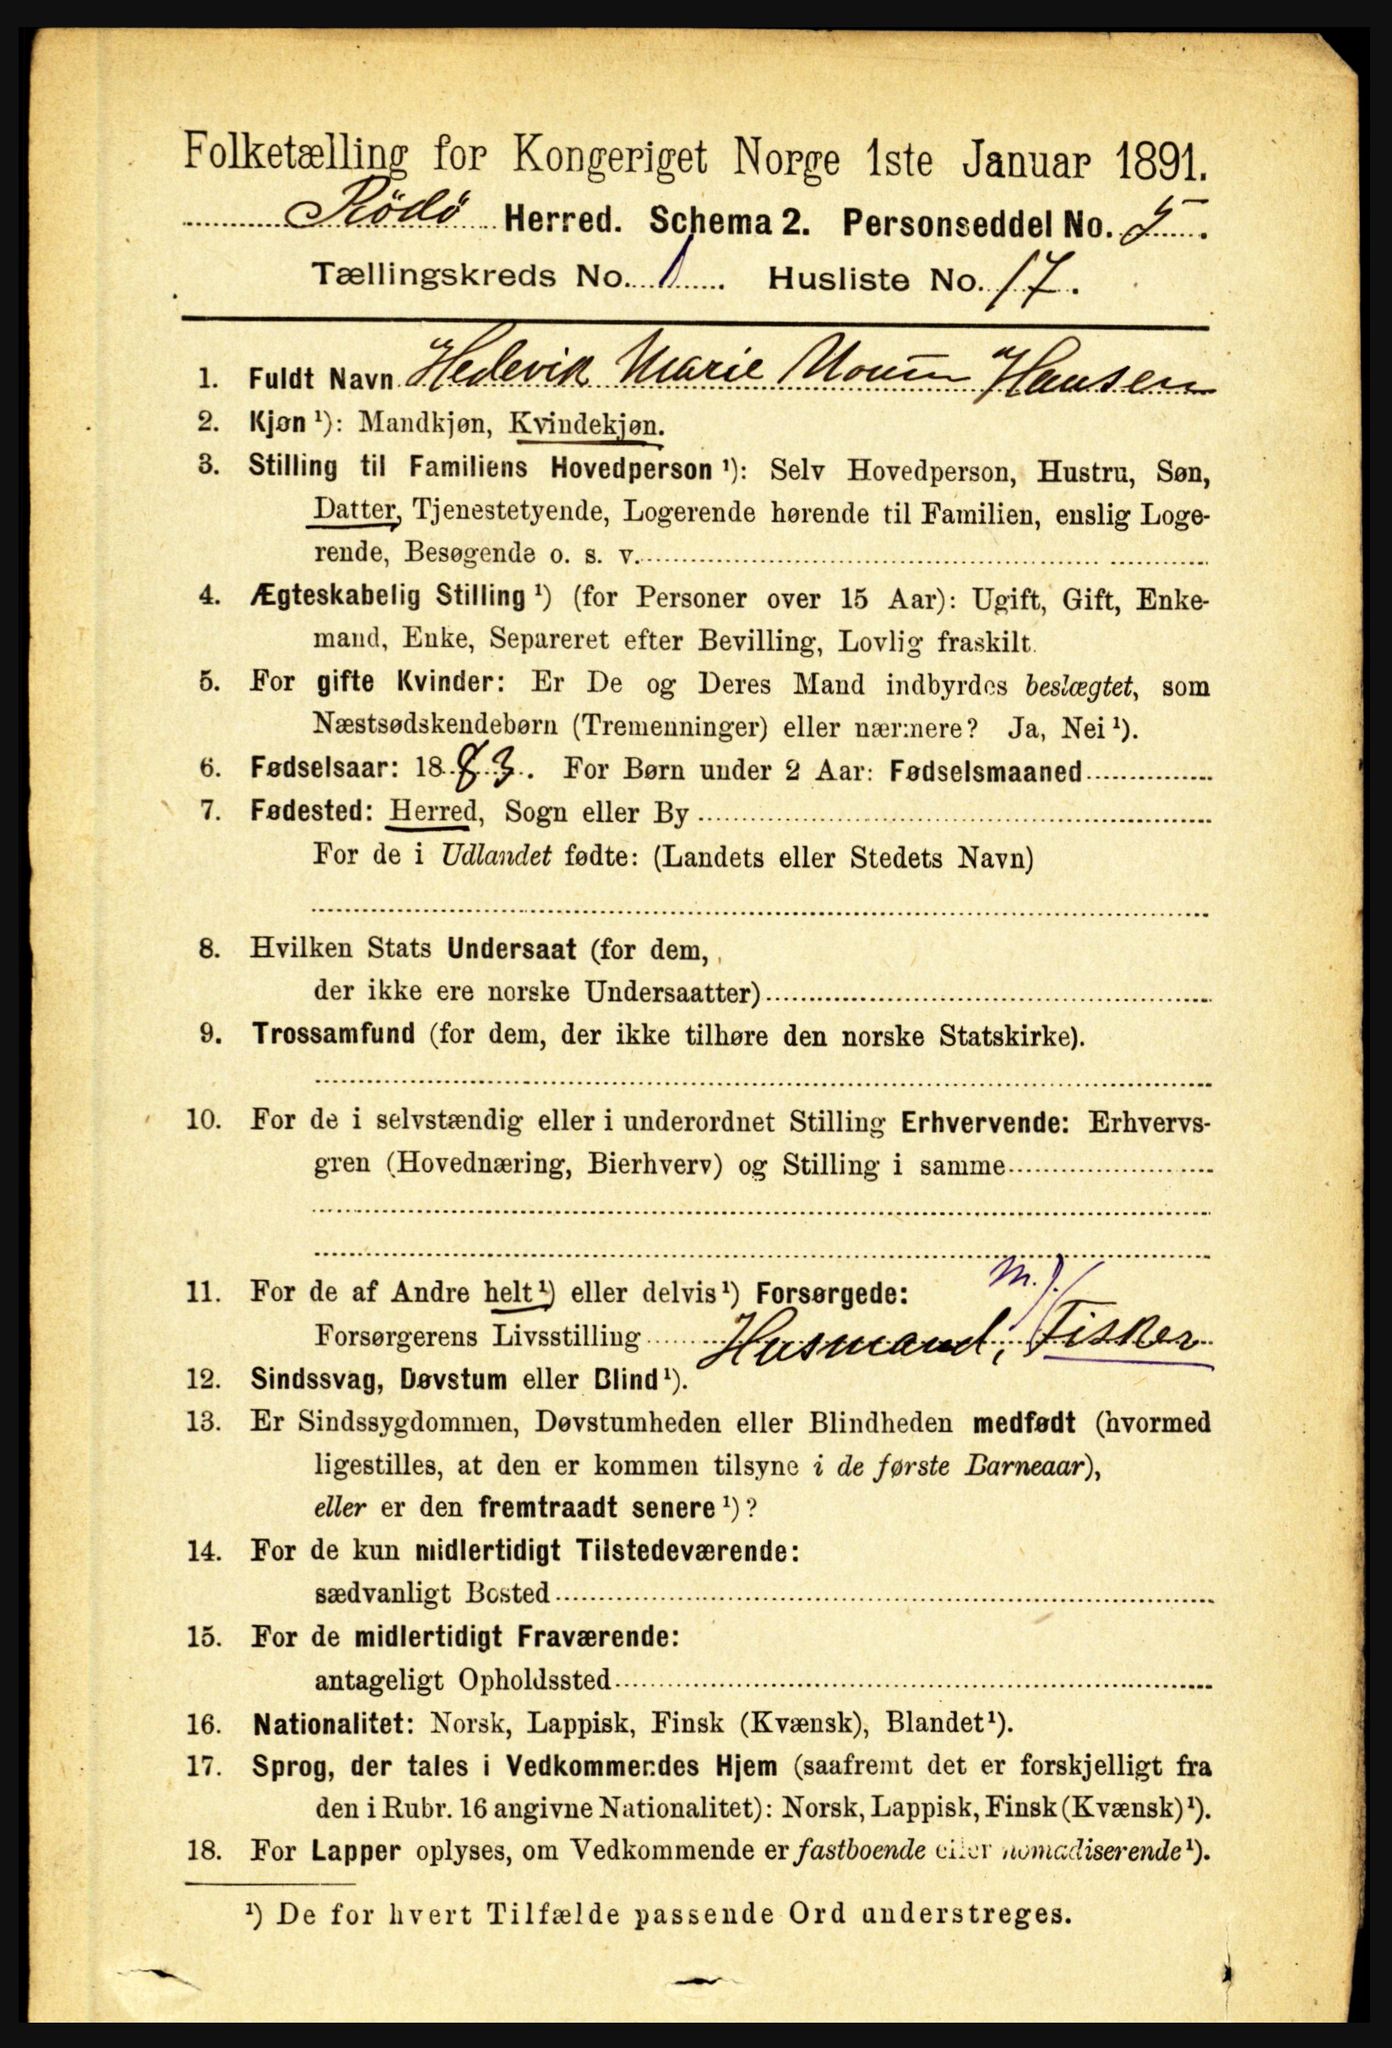 Folketælling for Kongeriget Norge 1ste Januar 1891.
Rödö Herred. Schema 2. Personseddel No. 5.
Tællingskreds No. 1 Husliste No. 17.
1. Fuldt Navn Hedevik Marie Hansen
2. Kjøn ¹): Mandkjøn, Kvindekjøn.
3. Stilling til Familiens Hovedperson ¹): Selv Hovedperson, Hustru, Søn,
Datter, Tjenestetyende, Logerende hørende til Familien, enslig Loge-
rende, Besøgende o. s. v.
4. Ægteskabelig Stilling ¹) (for Personer over 15 Aar): Ugift, Gift, Enke-
mand, Enke, Separeret efter Bevilling, Lovlig fraskilt.
5. For gifte Kvinder: Er De og Deres Mand indbyrdes beslægtet, som
Næstsødskendebørn (Tremenninger) eller nærmere? Ja, Nei ¹).
6. Fødselsaar: 1883. For Børn under 2 Aar: Fødselsmaaned
7. Fødested: Herred, Sogn eller By
For de i Udlandet fødte: (Landets eller Stedets Navn)
8. Hvilken Stats Undersaat (for dem,
der ikke ere norske Undersaatter)
9. Trossamfund (for dem, der ikke tilhøre den norske Statskirke).
10. For de i selvstændig eller i underordnet Stilling Erhvervende: Erhvervs-
gren (Hovednæring, Bierhverv) og Stilling i samme
11. For de af Andre helt ¹) eller delvis ¹) Forsørgede: m. J.
Forsørgerens Livsstilling Husmand, Fisker
12. Sindssvag, Døvstum eller Blind ¹).
13. Er Sindssygdommen, Døvstumheden eller Blindheden medfødt (hvormed
ligestilles, at den er kommen tilsyne i de første Barneaar),
eller er den fremtraadt senere ¹)?
14. For de kun midlertidigt Tilstedeværende:
sædvanligt Bosted
15. For de midlertidigt Fraværende:
antageligt Opholdssted
16. Nationalitet: Norsk, Lappisk, Finsk (Kvænsk), Blandet ¹).
17. Sprog, der tales i Vedkommendes Hjem (saafremt det er forskjelligt fra
den i Rubr. 16 angivne Nationalitet): Norsk, Lappisk, Finsk (Kvænsk) ¹).
18. For Lapper oplyses, om Vedkommende er fastboende eller nomadiserende ¹).
¹) De for hvert Tilfælde passende Ord understreges.